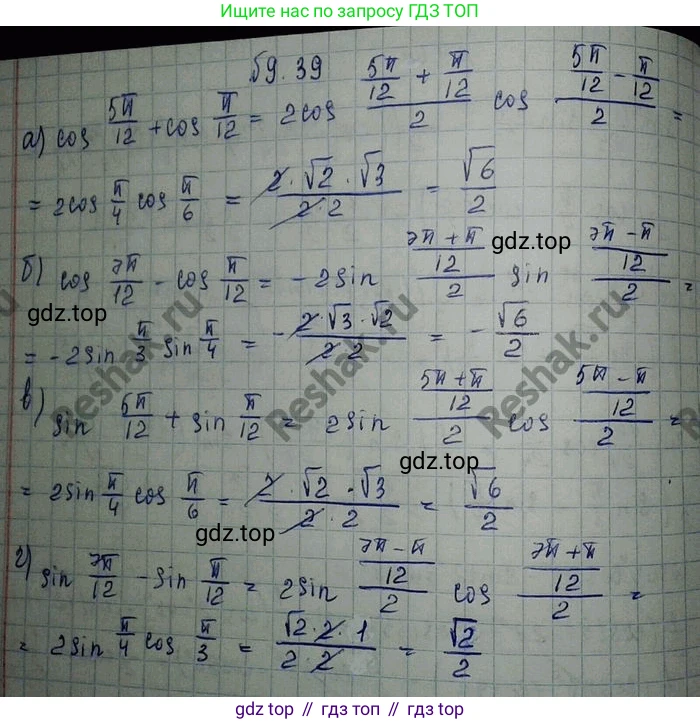 Ищите нас по запросу ГДЗ ТОП
§9.39
а) cos 5π/12 + cos π/12 = 2cos (5π/12 + π/12)/2 cos (5π/12 - π/12)/2 =
= 2cos π/4 cos π/6 = (2·√2·√3)/(2·2) = √6/2
gdz.top
б) cos 7π/12 - cos π/12 = -2sin ((7π+π)/12)/2 sin ((7π-π)/12)/2 =
gdz.top
= -2sin π/3 sin π/4 = -(2·√3·√2)/(2·2) = -√6/2
Reshak.ru
Reshak.ru
Reshak.ru
в) sin 5π/12 + sin π/12 = 2sin ((5π+π)/12)/2 cos ((5π-π)/12)/2 =
gdz.top
= 2sin π/4 cos π/6 = (2·√2·√3)/(2·2) = √6/2
gdz.top
г) sin 7π/12 - sin π/12 = 2sin ((7π-π)/12)/2 cos ((7π+π)/12)/2 =
= 2sin π/4 cos π/3 = (√2·2·1)/(2·2) = √2/2
gdz.top // гдз.топ // гдз топ